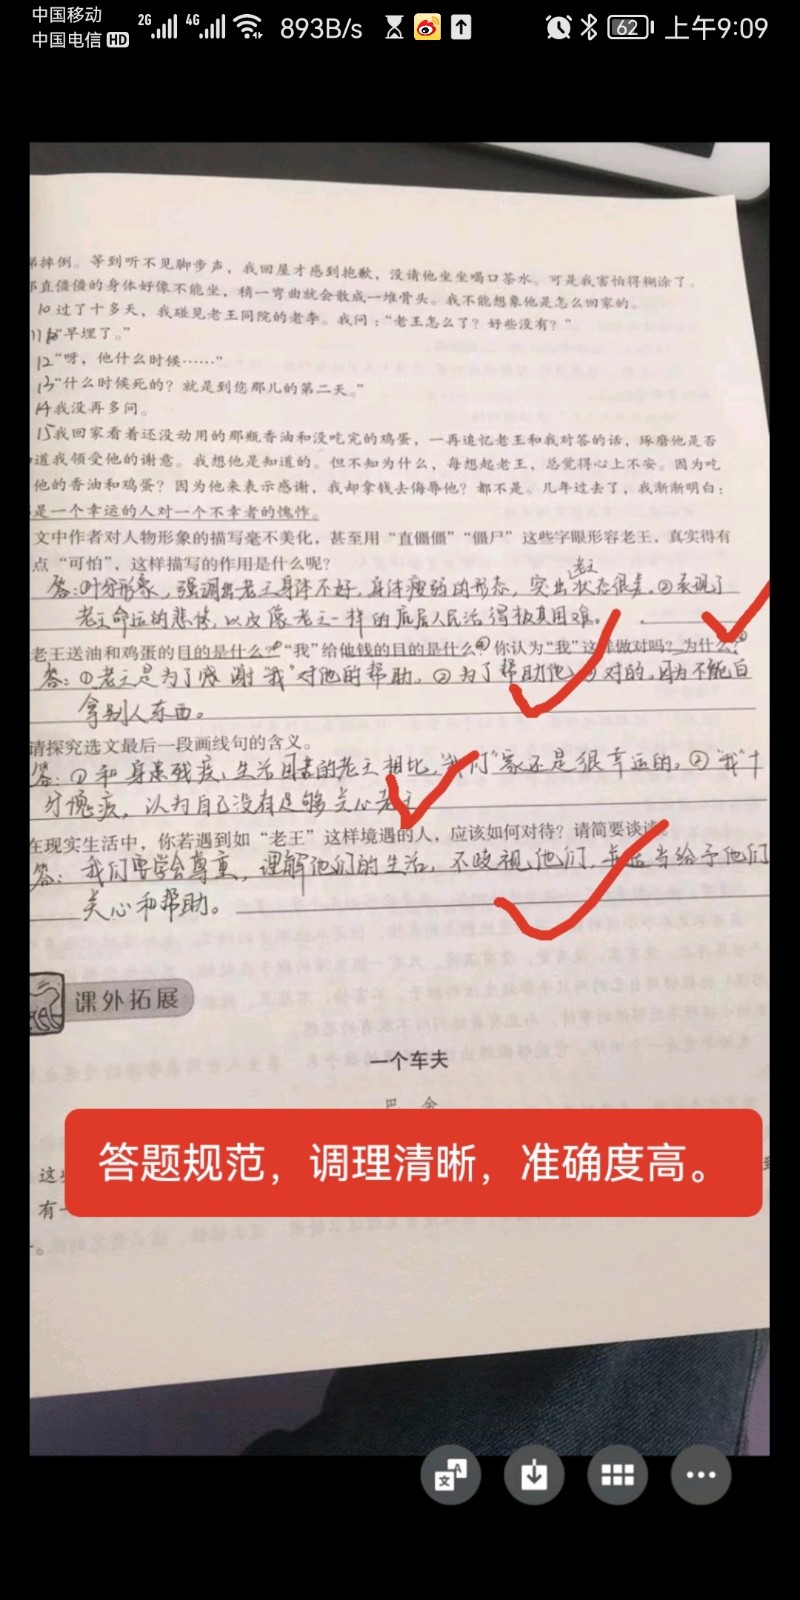 中国移动
中国电信 HD
2G 4G 893B/s 62 上午9:09
摔倒。等到听不见脚步声，我回屋才感到抱歉，没请他坐坐喝口茶水。可是我害怕得糊涂了。
直僵僵的身体好像不能坐，稍一弯曲就会散成一堆骨头。我不能想象他是怎么回家的。
10 过了十多天，我碰见老王同院的老李。我问：“老王怎么了？好些没有？”
11 “早埋了。”
12 “呀，他什么时候……”
13 “什么时候死的？就是到您那儿的第二天。”
14 我没再多问。
15 我回家看着还没动用的那瓶香油和没吃完的鸡蛋，一再追忆老王和我对答的话，琢磨他是否
道我领受他的谢意。我想他是知道的。但不知为什么，每想起老王，总觉得心上不安。因为吃
他的香油和鸡蛋？因为他来表示感谢，我却拿钱去侮辱他？都不是。几年过去了，我渐渐明白：
是一个幸运的人对一个不幸者的愧怍。
文中作者对人物形象的描写毫不美化，甚至用“直僵僵”“僵尸”这些字眼形容老王，真实得有
点“可怕”，这样描写的作用是什么呢？
答：①十分形象，强调出老王身体不好，身体瘦弱的形态，突出老王状态很差。②表现了
老王命运的悲惨，以及像老王一样的底层人民活得极其困难。
老王送油和鸡蛋的目的是什么？①“我”给他钱的目的是什么②你认为“我”这样做对吗？为什么？
答：①老王是为了感谢“我”对他的帮助。②为了帮助他 对的。因为不能白
拿别人东西。
请探究选文最后一段画线句的含义。
答：①和身患残疾，生活困苦的老王相比，“我们”家还是很幸运的。②“我”十
分愧疚，认为自己没有足够关心老王
在现实生活中，你若遇到如“老王”这样境遇的人，应该如何对待？请简要谈谈。
答：我们要学会尊重，理解他们的生活，不歧视他们，适当给予他们
关心和帮助。
课外拓展
一个车夫
巴 金
这
有一
答题规范，调理清晰，准确度高。